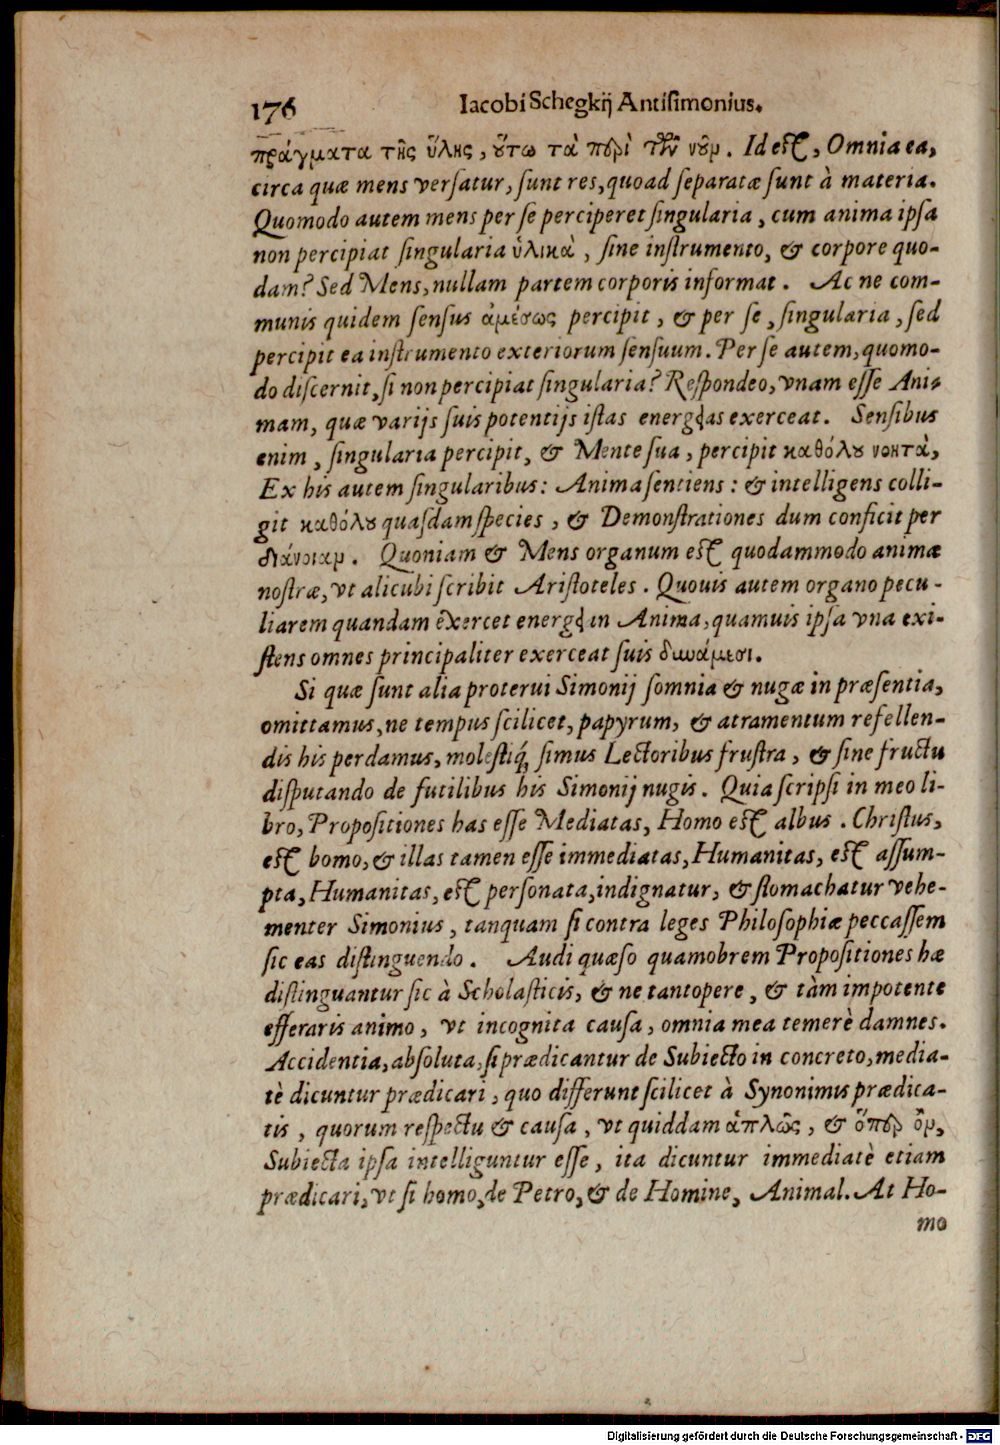 176 Iacobi Schegkij Antisimonius.
πράγματα τῆς ὕλης, ὅυτω τὰ περὶ τὸν νοῦν. Id est, Omnia ea,
circa quæ mens versatur, sunt res, quoad separatæ sunt à materia.
Quomodo autem mens per se perciperet singularia, cum anima ipsa
non percipiat singularia ὑλικὰ, sine instrumento, & corpore quo-
dam? Sed Mens, nullam partem corporis informat. Ac ne com-
munis quidem sensus ἀμέσως percipit, & per se, singularia, sed
percipit ea instrumento exteriorum sensuum. Per se autem, quomo-
do discernit, si non percipiat singularia? Respondeo, vnam esse Ani-
mam, quæ varijs suis potentijs istas energeias exerceat. Sensibus
enim, singularia percipit, & Mente sua, percipit καθόλου νοητὰ,
Ex his autem singularibus: Anima sentiens: & intelligens colli-
git καθόλου quasdam species, & Demonstrationes dum conficit per
διάνοιαν. Quoniam & Mens organum est quodammodo animæ
nostræ, vt alicubi scribit Aristoteles. Quouis autem organo pecu-
liarem quandam exercet energein Anima, quamuis ipsa vna exi-
stens omnes principaliter exerceat suis δυνάμεσι.
Si quæ sunt alia proterui Simonij somnia & nugæ in præsentia,
omittamus, ne tempus scilicet, papyrum, & atramentum refellen-
dis his perdamus, molestiq́; simus Lectoribus frustra, & sine fructu
disputando de futilibus his Simonij nugis. Quia scripsi in meo li-
bro, Propositiones has esse Mediatas, Homo est albus. Christus,
est homo, & illas tamen esse immediatas, Humanitas, est assum-
pta, Humanitas, est personata, indignatur, & stomachatur vehe-
menter Simonius, tanquam si contra leges Philosophiæ peccassem
sic eas distinguendo. Audi quæso quamobrem Propositiones hæ
distinguantur sic à Scholasticis, & ne tantopere, & tàm impotente
efferaris animo, vt incognita causa, omnia mea temerè damnes.
Accidentia, absoluta, si prædicantur de Subiecto in concreto, media-
tè dicuntur prædicari, quo differunt scilicet à Synonimis prædica-
tis, quorum respectu & causa, vt quiddam ἁπλῶς, & ὅπερ ὂν,
Subiecta ipsa intelliguntur esse, ita dicuntur immediatè etiam
prædicari, vt si homo, de Petro, & de Homine, Animal. At Ho-
mo
Digitalisierung gefördert durch die Deutsche Forschungsgemeinschaft - DFG